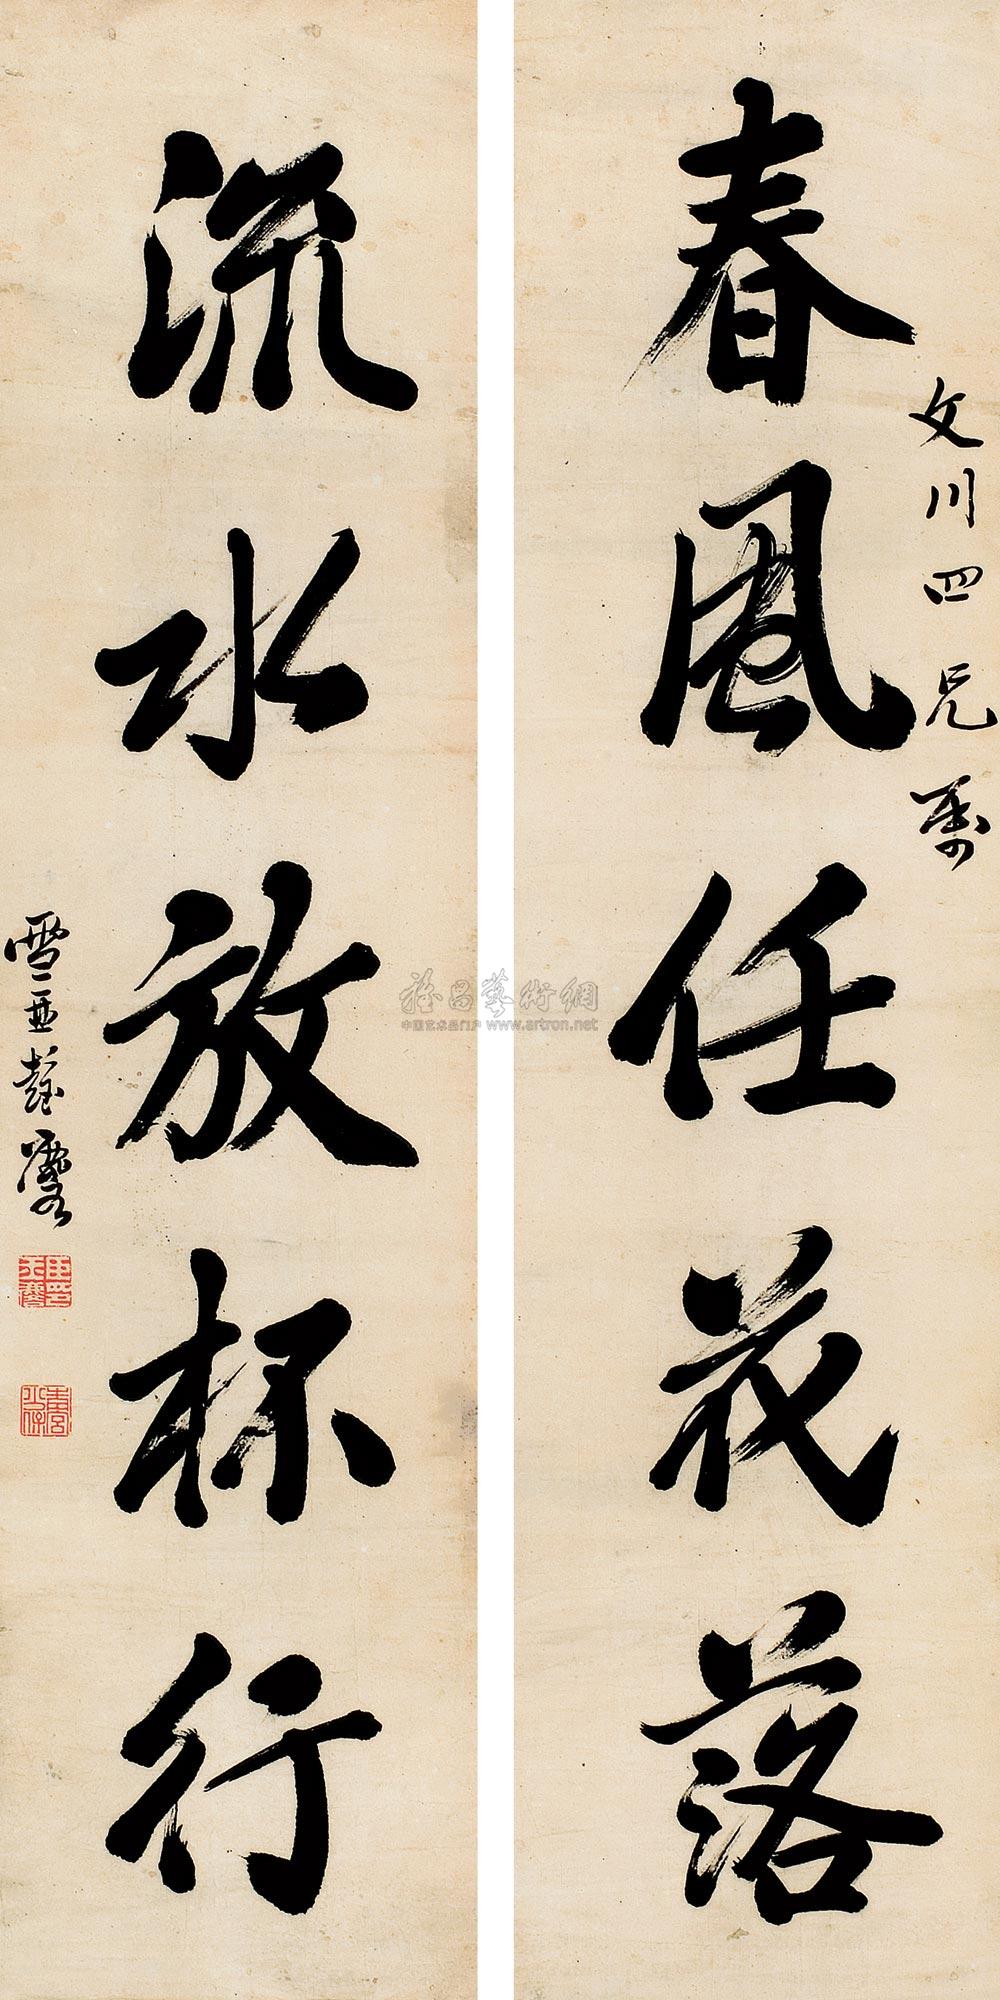 文川四兄属
春风任花落
流水放杯行
雪
雅昌艺術網
中国艺术品门户 www.artron.net